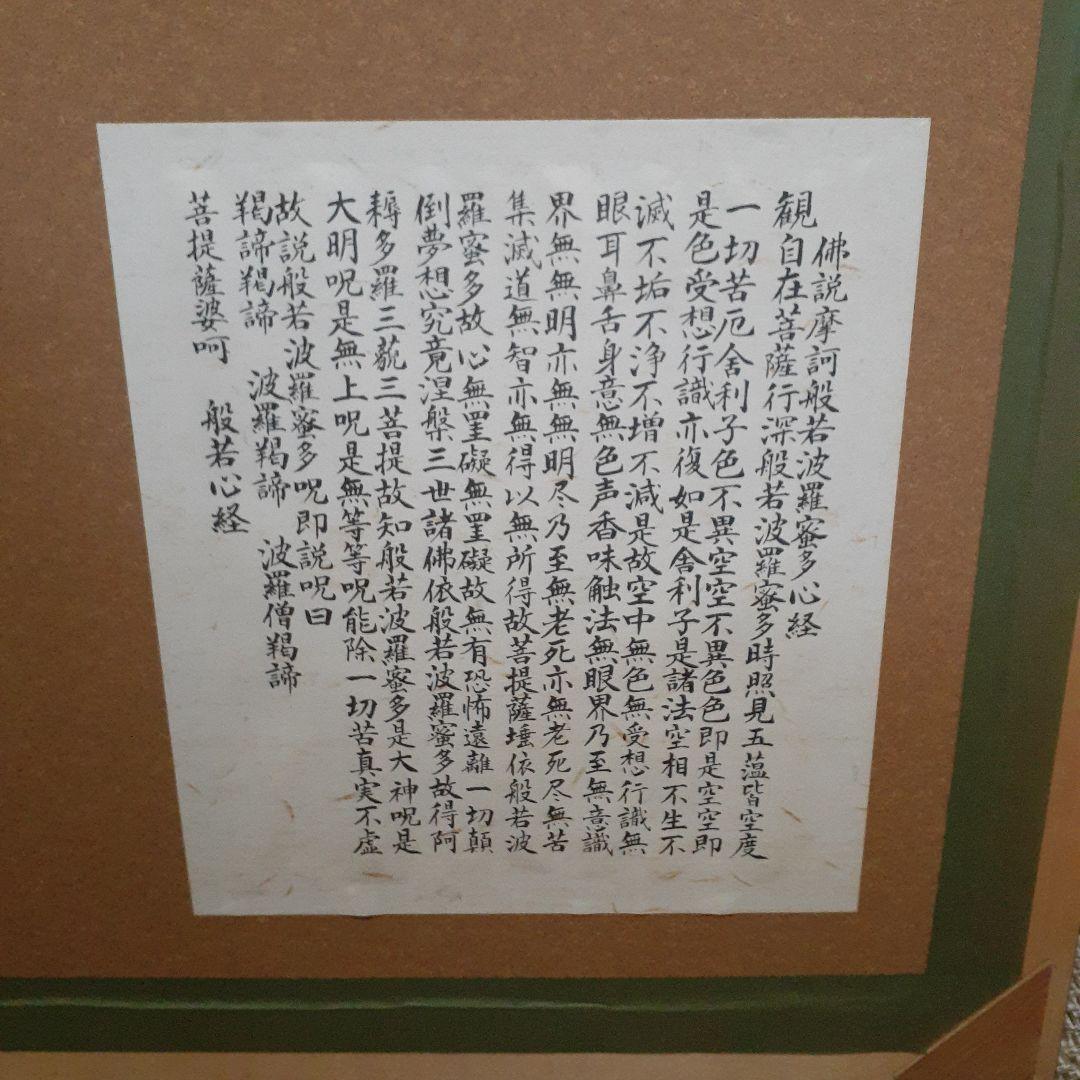 佛説摩訶般若波羅蜜多心経
観自在菩薩行深般若波羅蜜多時照見五蘊皆空度
一切苦厄舎利子色不異空空不異色色即是空空即
是色受想行識亦復如是舎利子是諸法空相不生不
滅不垢不浄不増不減是故空中無色無受想行識無
眼耳鼻舌身意無色声香味触法無眼界乃至無意識
界無無明亦無無明尽乃至無老死亦無老死尽無苦
集滅道無智亦無得以無所得故菩提薩埵依般若波
羅蜜多故心無罣礙無罣礙故無有恐怖遠離一切顛
倒夢想究竟涅槃三世諸佛依般若波羅蜜多故得阿
耨多羅三藐三菩提故知般若波羅蜜多是大神呪是
大明呪是無上呪是無等等呪能除一切苦真実不虚
故説般若波羅蜜多呪即説呪曰
羯諦羯諦 波羅羯諦 波羅僧羯諦
菩提薩婆呵 般若心経